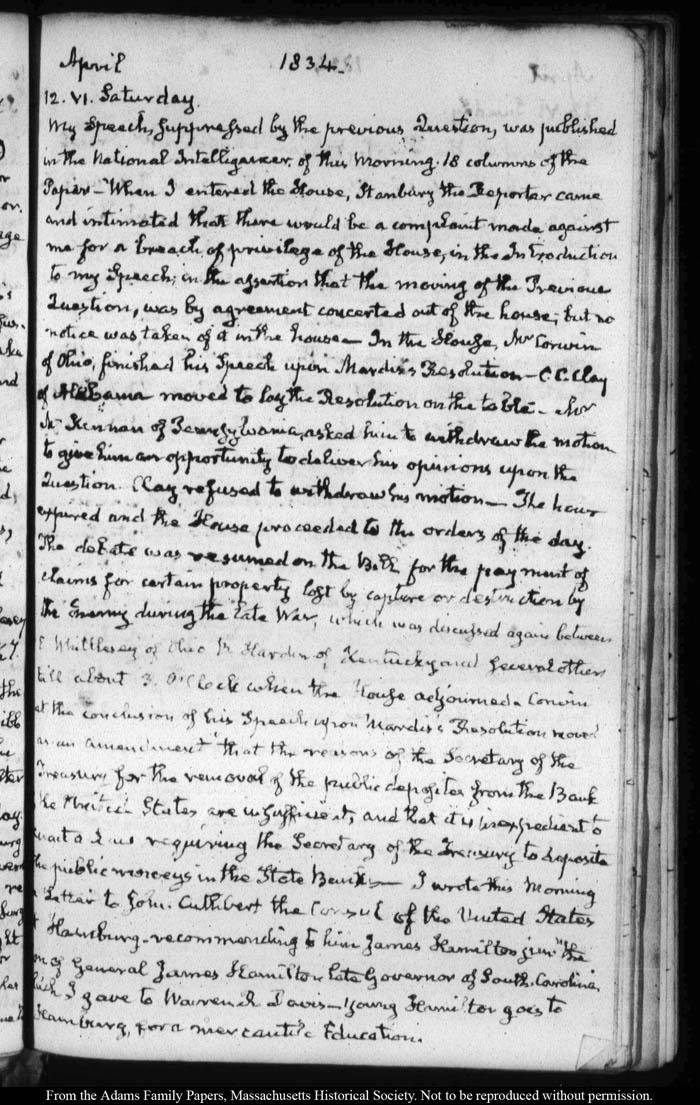 April 1834.
12. VI. Saturday.
My Speech, suppressed by the previous Question, was published
in the National Intelligencer, of this Morning. 18 columns of the
Paper — When I entered the House, Stanbury the Reporter came
and intimated that there would be a complaint made against
me for a breach of privilege of the House, in the Introduction
to my Speech; in the assertion that the moving of the Previous
Question, was by agreement concerted out of the house; but no
notice was taken of it in the house — In the House, Mr Corwin
of Ohio, finished his Speech upon Mardis's Resolution — C. C. Clay
of Alabama moved to lay the Resolution on the table — Mr
Mc Kennan of Pennsylvania, asked him to withdraw the motion
to give him an opportunity to deliver his opinions upon the
Question. Clay refused to withdraw his motion — The hour
expired and the House proceeded to the orders of the day.
The debate was resumed on the Bill for the payment of
claims for certain property lost by capture or destruction by
the Enemy during the late War, which was discussed again between
E Whittlesey of Ohio B. Hardin of Kentucky and several others
till about 3. O'Clock when the House adjourned. Corwin
at the conclusion of his Speech upon Mardis's Resolution moved
as an amendment "that the reasons of the Secretary of the
Treasury for the removal of the public deposites from the Bank
the United States are insufficient, and that it is inexpedient to
enact a Law requiring the Secretary of the Treasury to deposite
the public moneys in the State Banks — I wrote this Morning
a Letter to John Cuthbert the Consul of the United States
at Hamburg — recommending to him James Hamilton junr the
son of General James Hamilton late Governor of South Carolina,
which I gave to Warren R Davis — Young Hamilton goes to
Hamburg, for a mercantile Education.
From the Adams Family Papers, Massachusetts Historical Society. Not to be reproduced without permission.